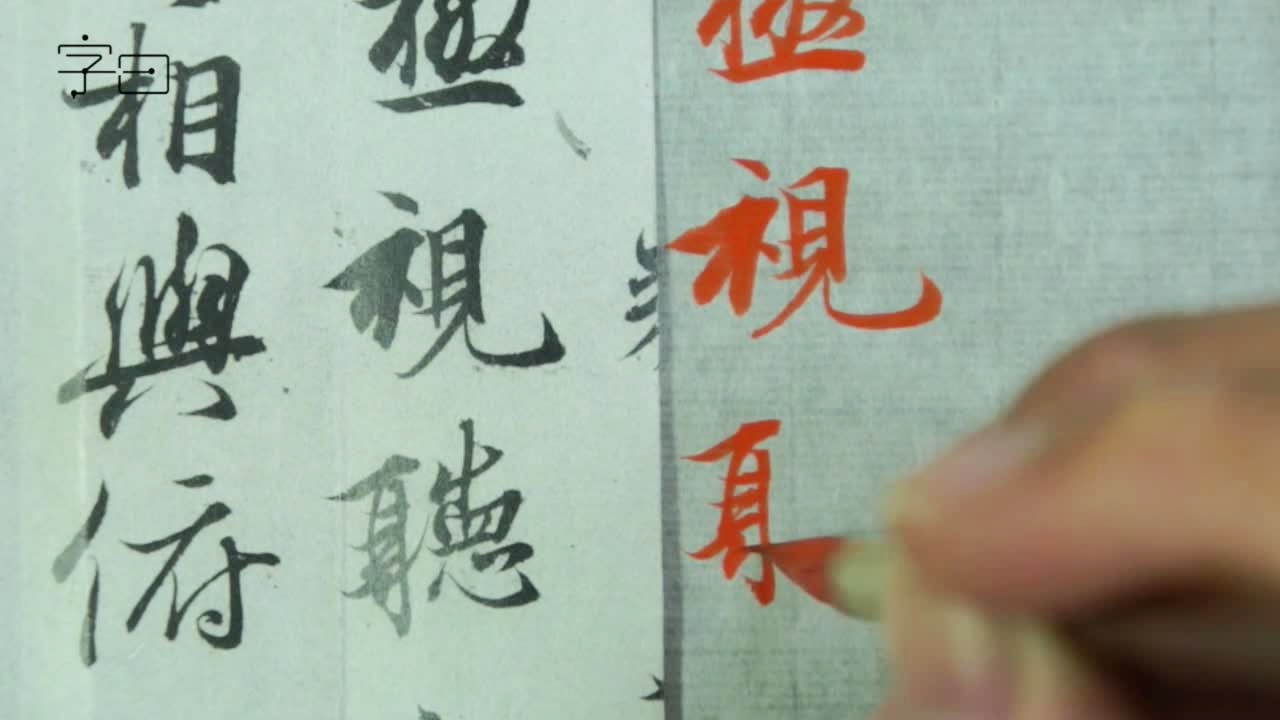 字曰
極視耳
極視聽
相與俯